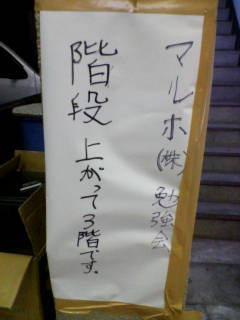 マルホ(株)勉強会
階段上がって3階です。